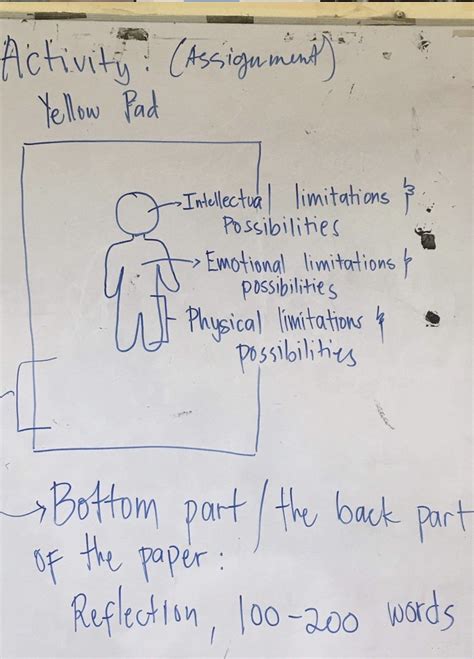 Activity : (Assignment)
Yellow Pad
Intellectual limitations &
Possibilities
Emotional limitations &
possibilities
Physical limitations &
possibilities
Bottom part / the back part
of the paper :
Reflection, 100-200 words